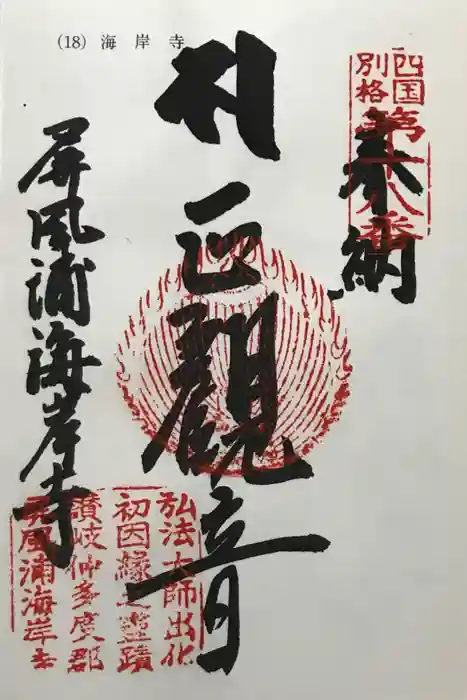 (18) 海岸寺
四国
別格
第十八番
奉納
正観音
屏風浦海岸寺
弘法大師出化
初因縁之霊蹟
讃岐仲多度郡
屏風浦海岸寺